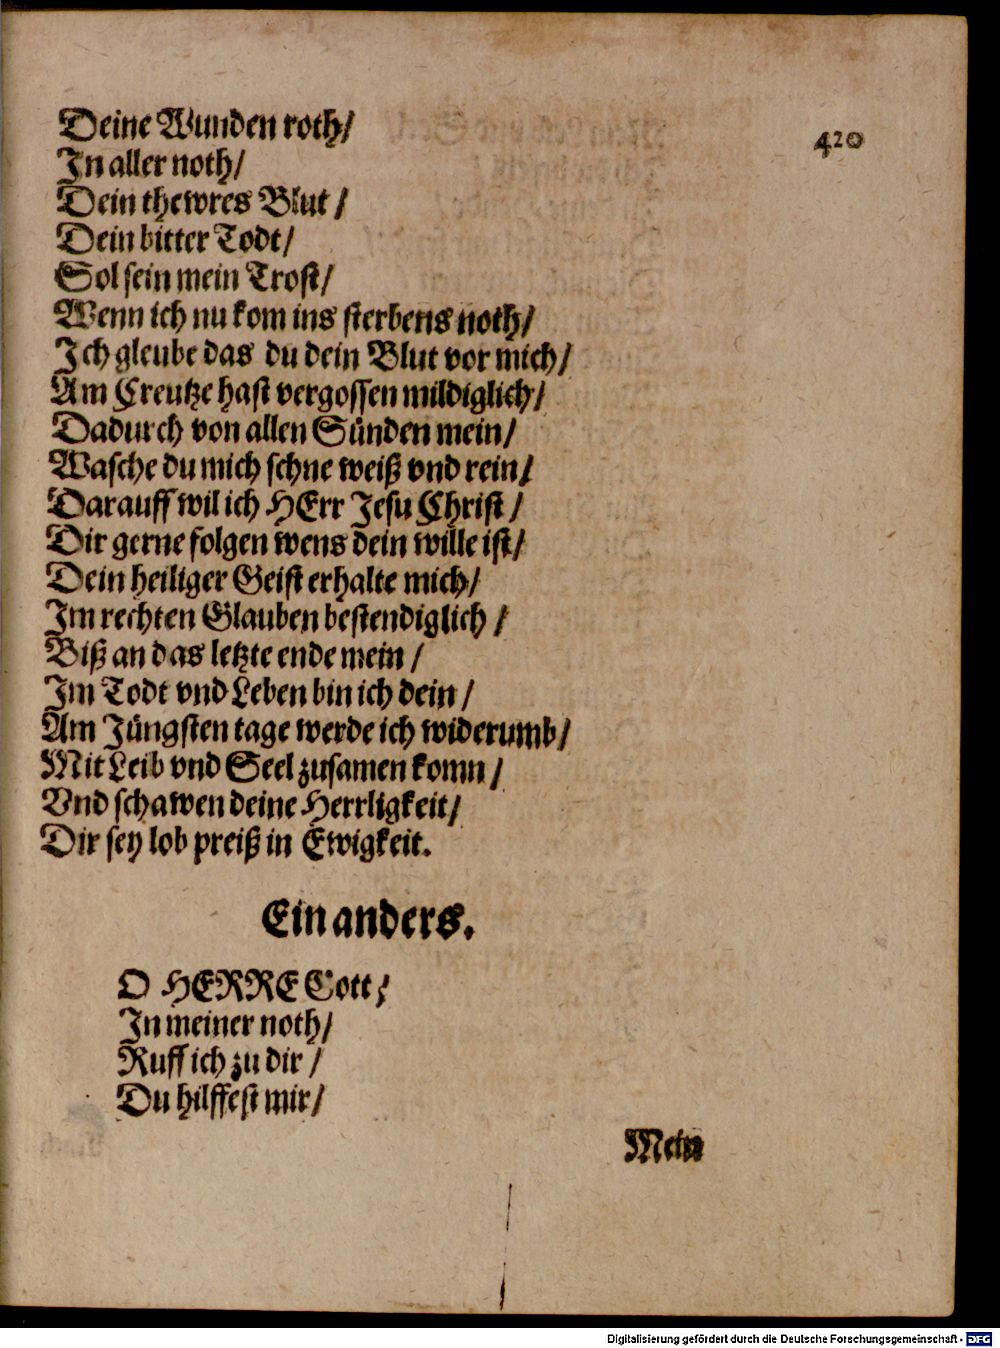 420
Deine Wunden roth/
In aller noth/
Dein thewres Blut/
Dein bitter Todt/
Sol sein mein Trost/
Wenn ich nu kom ins sterbens noth/
Ich gleube das du dein Blut vor mich/
Am Creutze hast vergossen mildiglich/
Dadurch von allen Sünden mein/
Wasche du mich schne weiß vnd rein/
Darauff wil ich HErr Jesu Christ/
Dir gerne folgen wens dein wille ist/
Dein heiliger Geist erhalte mich/
Im rechten Glauben bestendiglich/
Biß an das letzte ende mein/
Im Todt vnd Leben bin ich dein/
Am Jüngsten tage werde ich widerumb/
Mit Leib vnd Seel zusamen komn/
Vnd schawen deine Herrligkeit/
Dir sey lob preiß in Ewigkeit.
Ein anders.
O HERRE Gott/
In meiner noth/
Ruff ich zu dir/
Du hilffest mir/
Mein
Digitalisierung gefördert durch die Deutsche Forschungsgemeinschaft - DFG